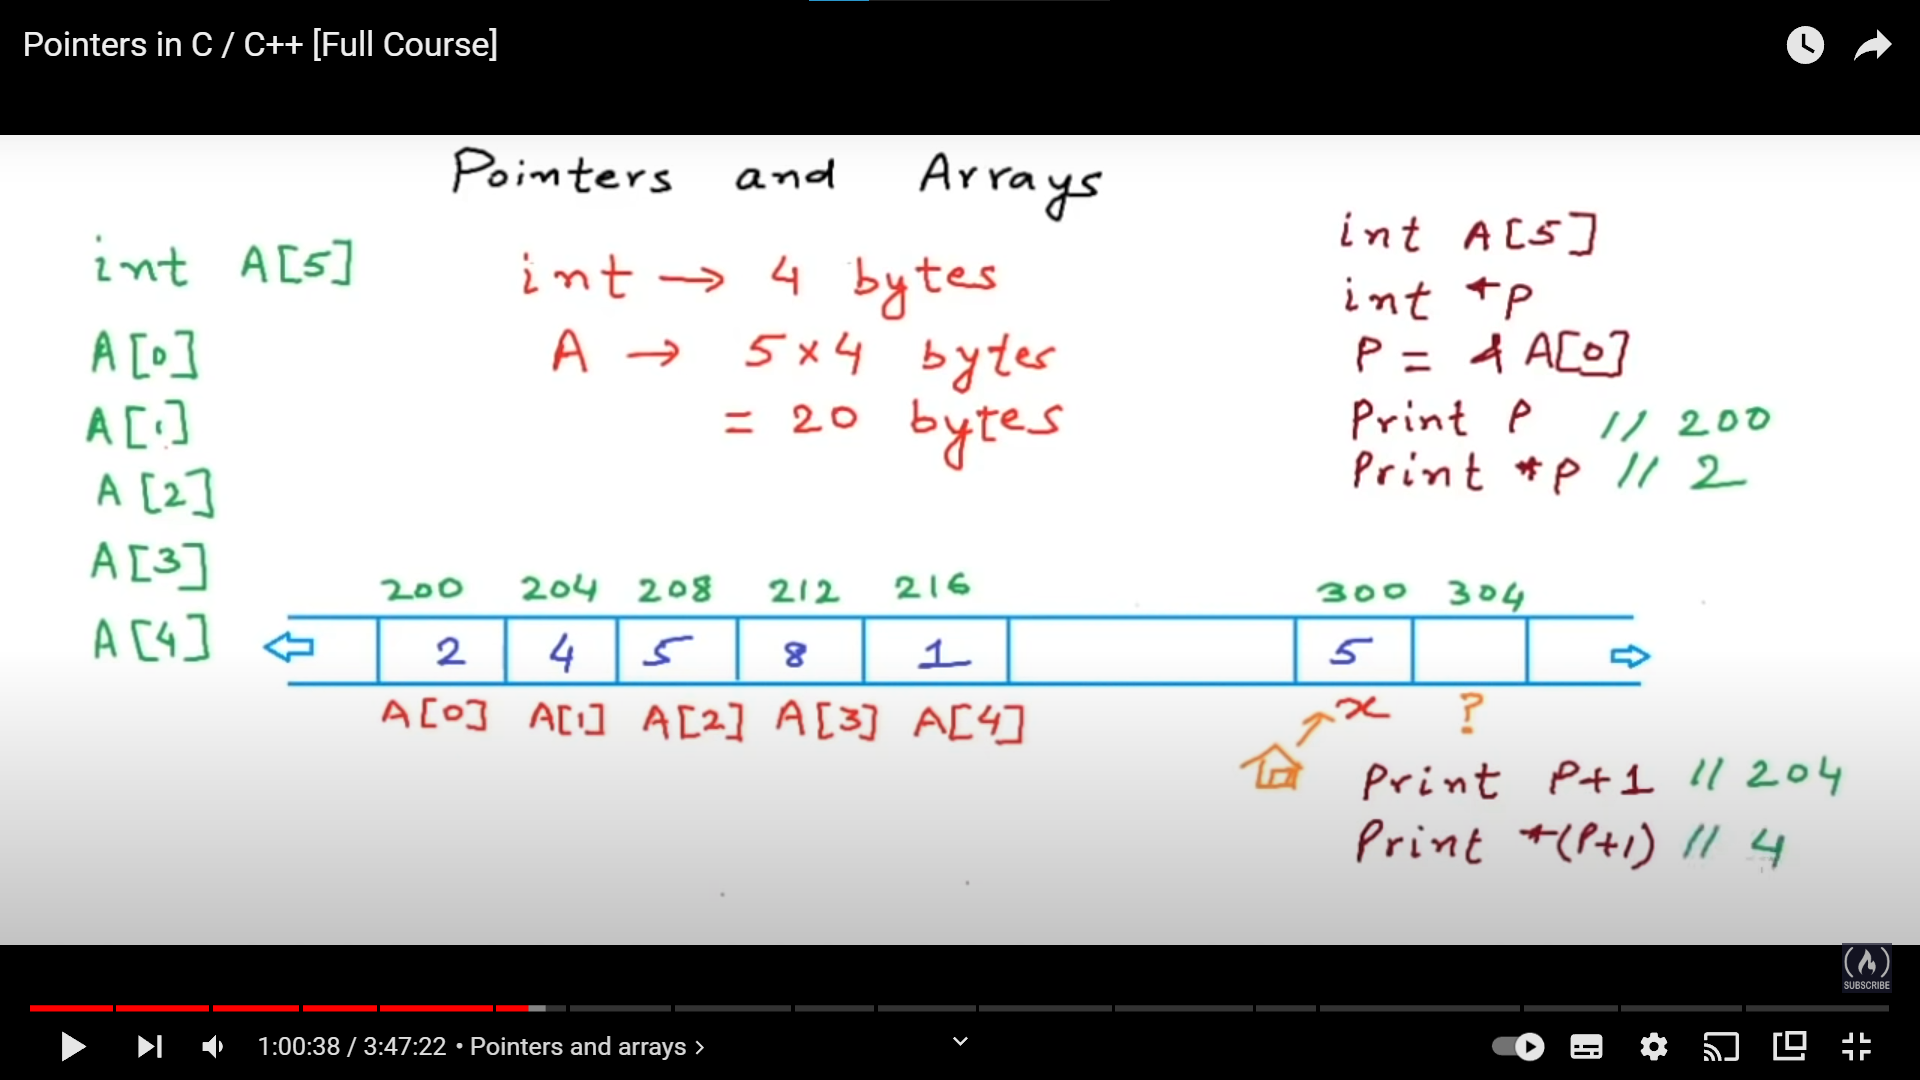 Pointers in C / C++ [Full Course]
Pointers and Arrays
int A[5]
A[0]
A[1]
A[2]
A[3]
A[4]
int → 4 bytes
A → 5 x 4 bytes
= 20 bytes
int A[5]
int *p
P = &A[0]
Print P // 200
Print *p // 2
200 204 208 212 216 300 304
2 4 5 8 1 5
A[0] A[1] A[2] A[3] A[4] x ?
Print P+1 // 204
Print *(P+1) // 4
SUBSCRIBE
1:00:38 / 3:47:22 • Pointers and arrays